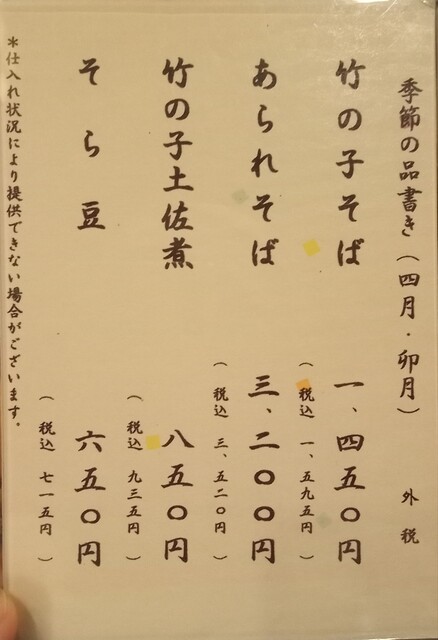 季節の品書き（四月・卯月） 外税
竹の子そば 一、四五〇円
（税込 一、五九五円）
あられそば 三、二〇〇円
（税込 三、五二〇円）
竹の子土佐煮 八五〇円
（税込 九三五円）
そら豆 六五〇円
（税込 七一五円）
＊仕入れ状況により提供できない場合がございます。